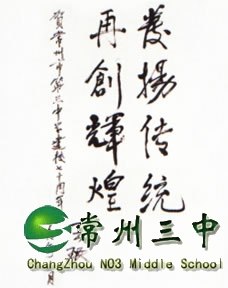 發揚传统
再創輝煌
賀常州市第三中学建校七十周年
常州三中
ChangZhou NO3 Middle School